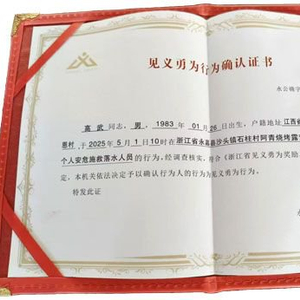 见义勇为行为确认证书
永公确字
高武同志，男，1983 01月26日出生，户籍地址江西省
于2025年5月1日10时在浙江省永嘉县沙头镇石柱村阿青烧烤露
个人安危施救落水人员的行为，经调查核实，符合《浙江省见义勇为奖励
定，本机关依法决定予以确认行为人的行为为见义勇为行为。
特发此证